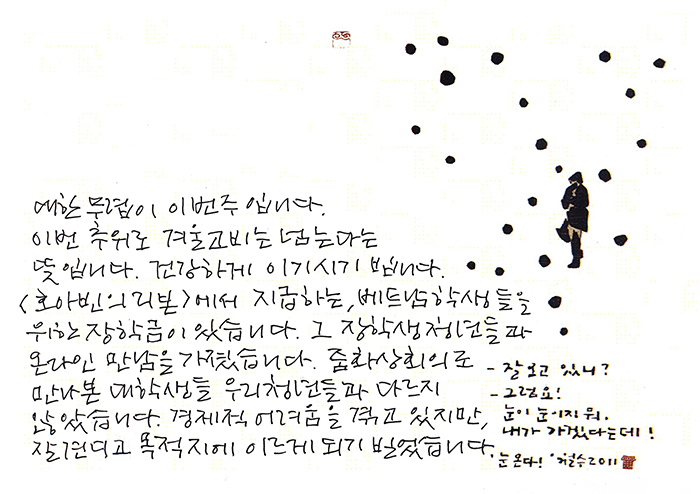 대한 무렵이 이번주 입니다.
이번 추위로 겨울고비는 넘는다는
뜻입니다. 건강하게 이기시기 빕니다.
<호아빈의 리본>에서 지급하는, 베트남학생들을
위한 장학금이 있습니다. 그 장학생 청년들과
온라인 만남을 가졌습니다. 줌화상회의로
만나본 대학생들 우리청년들과 다르지
않았습니다. 경제적 어려움을 겪고 있지만,
잘 견디고 목적지에 이르게 되기 빌었습니다.
- 잘 보고 있니?
- 그럼요!
눈이 눈이지 뭐.
내가 가겠다는데!
눈 온다! 철수 2011